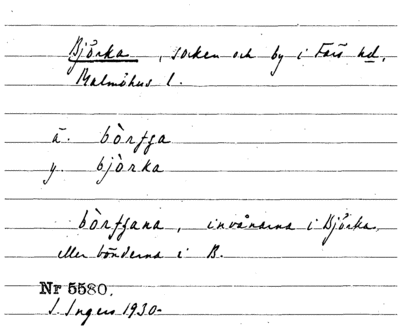 Björka, socken och by i Färs hd,
Malmöhus l.
ä. bòrfga
y. bjòrka
bòrfgana, invånarna i Björka,
eller bönderna i B.
Nr 5580.
I. Ingers 1930-